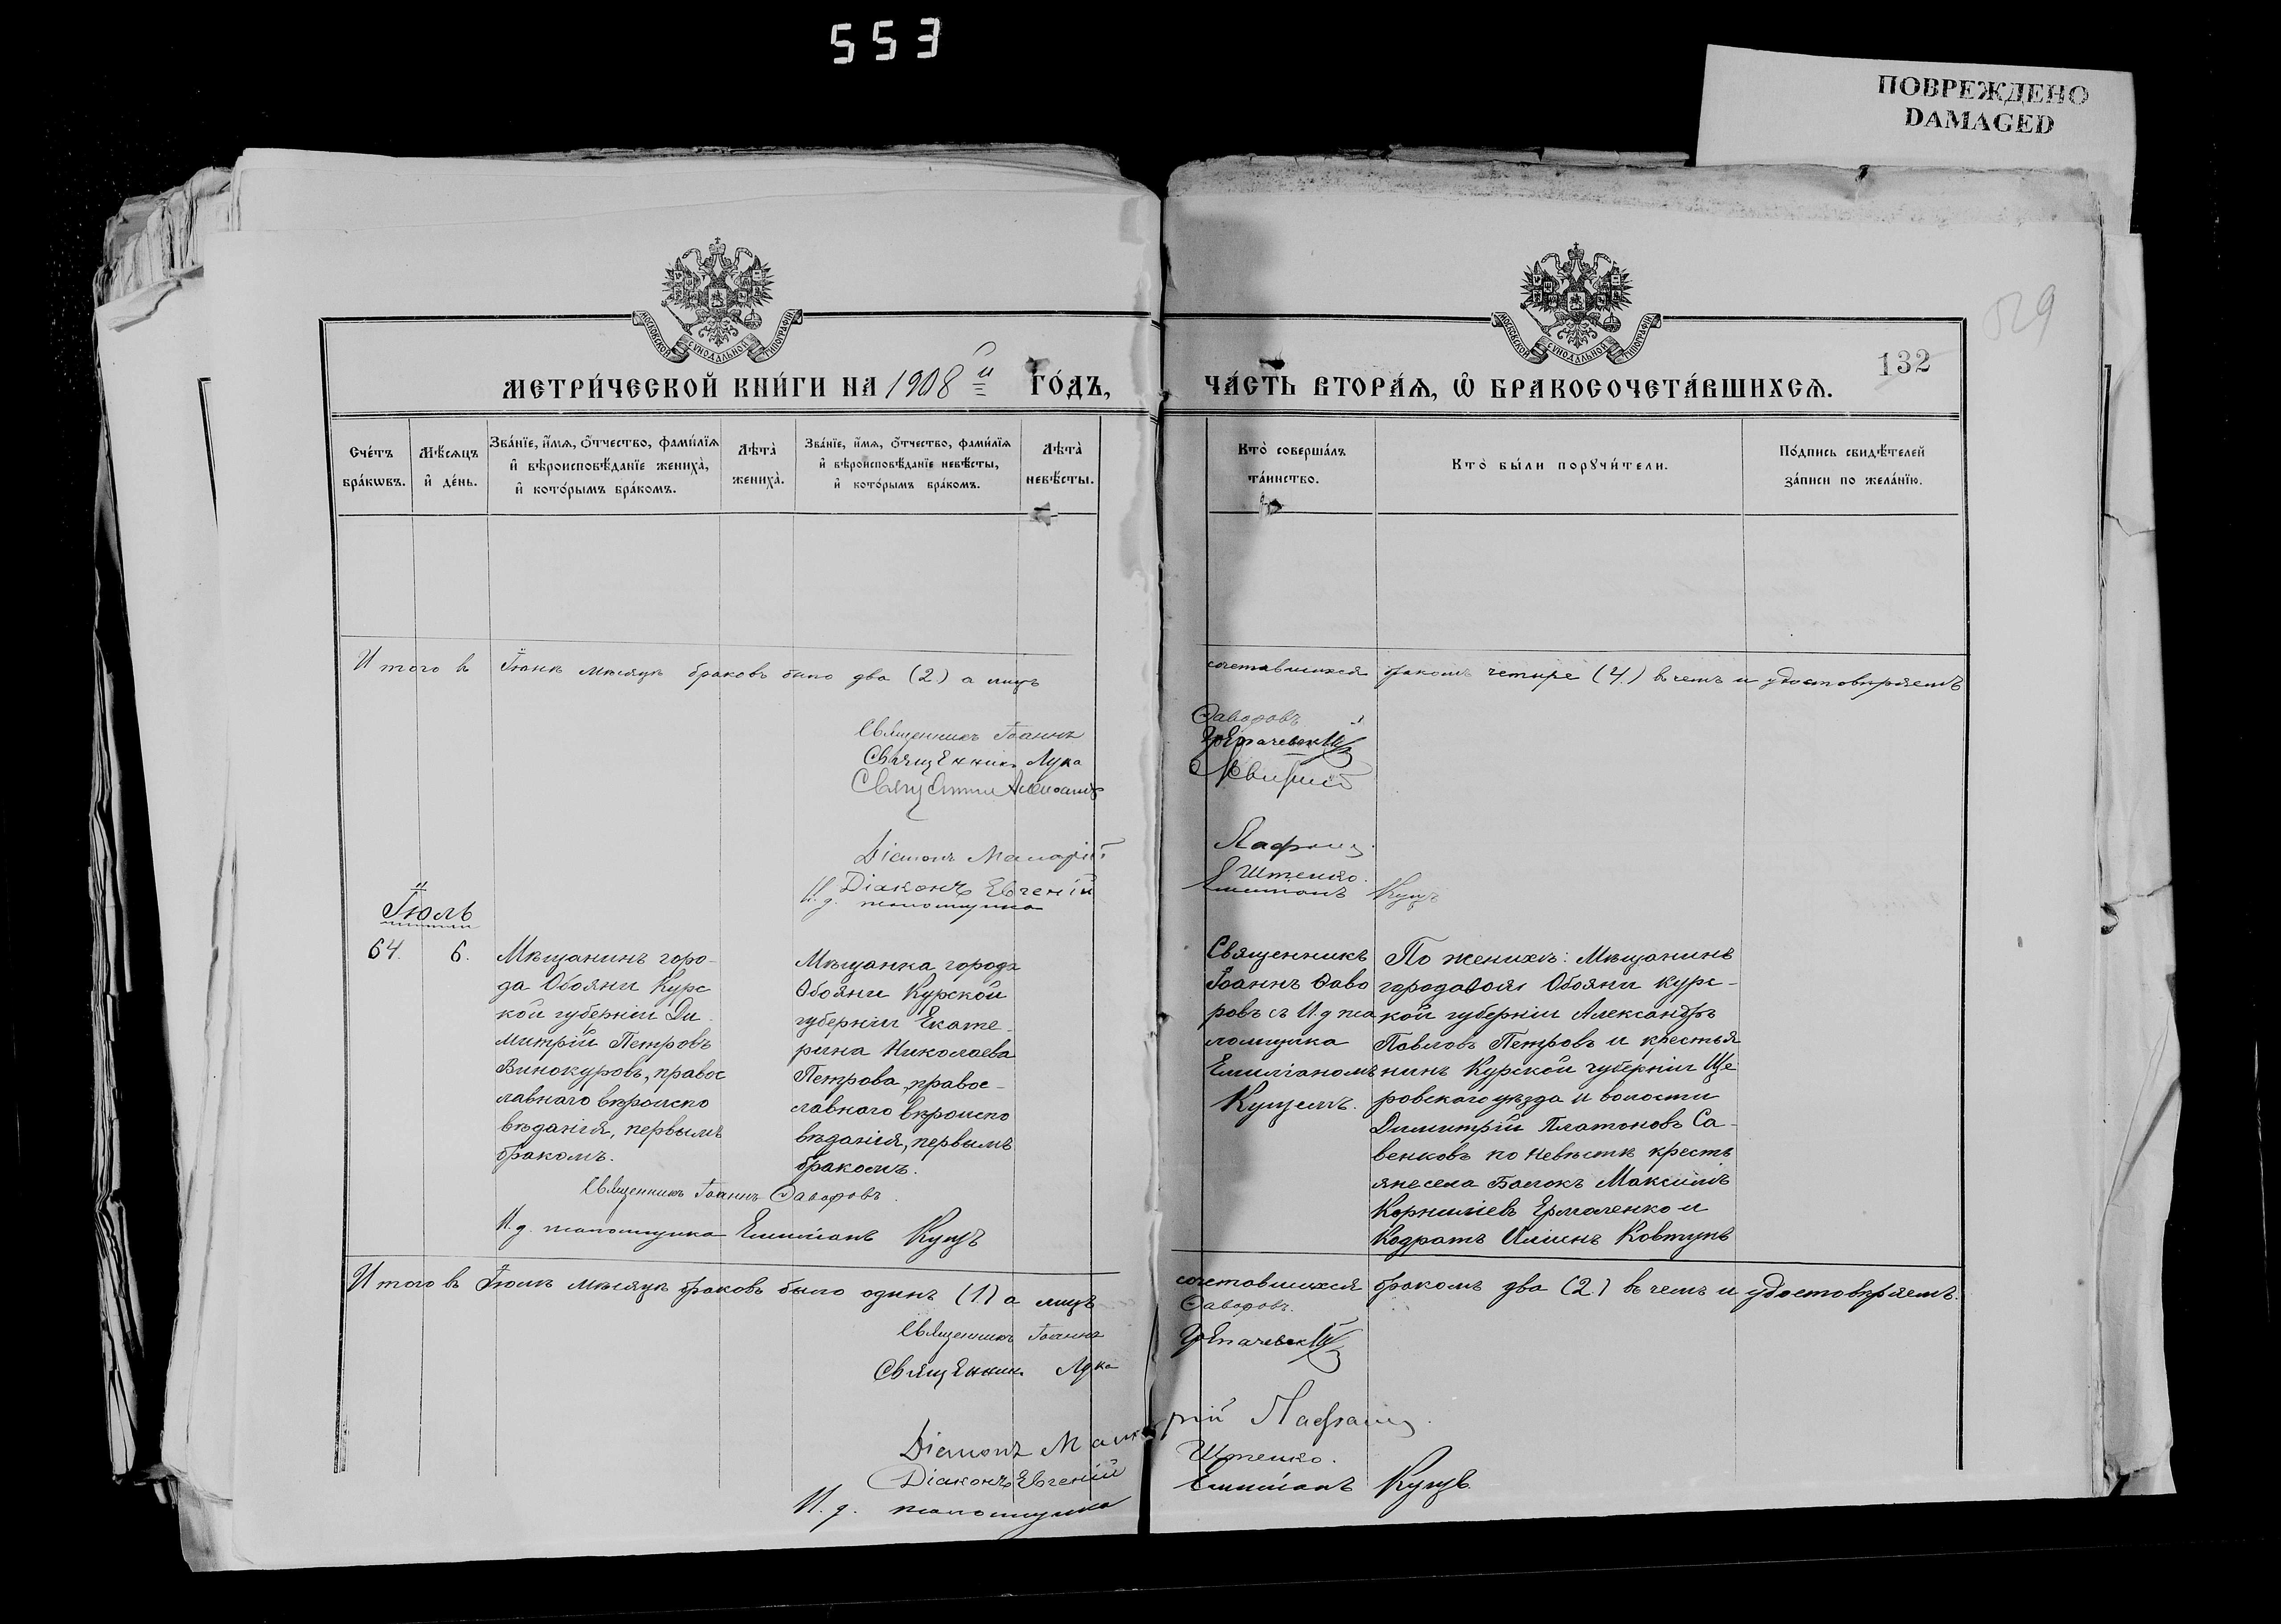 553
ПОВРЕЖДЕНО
DAMAGED
529
132
МОСКОВСКОЙ СУНОДАЛЬНОЙ ТИПОГРАФІИ
МОСКОВСКОЙ СУНОДАЛЬНОЙ ТИПОГРАФІИ
МЕТРИ́ЧЕСКОЙ КНИ́ГИ НА 1908й ГО́ДЪ,
ЧА́СТЬ ВТОРА́Ѧ, Ѿ БРАКОСОЧЕТА́ВШИХСѦ.
Сче́тъ бра́кѡвъ.
Мѣ́сѧцъ и҆ де́нь.
Зва́нїе, и҆́мѧ, ѻ҆́тчество, фами́лїѧ и҆ вѣроисповѣ́данїе жениха̀, и҆ кото́рымъ бра́комъ.
Лѣта̀ жениха̀.
Зва́нїе, и҆́мѧ, ѻ҆́тчество, фами́лїѧ и҆ вѣроисповѣ́данїе невѣ́сты, и҆ кото́рымъ бра́комъ.
Лѣта̀ невѣ́сты.
Кто̀ соверша́лъ та́инство.
Кто̀ бы́ли порꙋчи́тели.
По́дпись свидѣ́телей за́писи по жела́нїю.
Итого въ Іюнѣ мѣсяцѣ браковъ было два (2) а лицъ сочетавшихся бракомъ четыре (4.) въ чемъ и удостовѣряемъ
Священникъ Іоаннъ Фаворовъ
Священникъ Лука
Діаконъ Макарій
Діаконъ Евгеній Штенко.
И. д. псаломщика Емиліанъ Куцъ
Іюль
64. 6.
Мѣщанинъ горо-
да Обояни Курс
кой губерніи Ди-
митрій Петровъ
Винокуровъ, правос
лавнаго вѣроиспо
вѣданія, первымъ
бракомъ.
Мѣщанка города
Обояни Курской
губерніи Екате-
рина Николаева
Петрова, правос-
лавнаго вѣроиспо
вѣданія, первымъ
бракомъ.
Священникъ
Іоаннъ Фаво
ровъ съ И. д пса
ломщика
Емиліаномъ
Куцемъ.
По женихѣ: Мѣщанинъ
города Обояни Курс-
кой губерніи Александръ
Павловъ Петровъ и крестья
нинъ Курской губерніи Ще
ровскаго уѣзда и волости
Димитрій Платоновъ Са-
венковъ по невѣстѣ кресть
яне села Балокъ Максимъ
Корниліевъ Ермоленко и
Кодратъ Иліинъ Ковтунъ
Священникъ Іоаннъ Фаворовъ.
И. д. псаломщика Емиліанъ Куцъ
Итого въ Іюлѣ мѣсяцѣ браковъ было одинъ (1) а лицъ сочетавшихся бракомъ два (2.) въ чемъ и удостовѣряемъ.
Священникъ Іоаннъ Фаворовъ.
Священникъ Лука
Діаконъ Макарій
Діаконъ Евгеній Штенко.
И. д. псаломщика Емиліанъ Куцъ